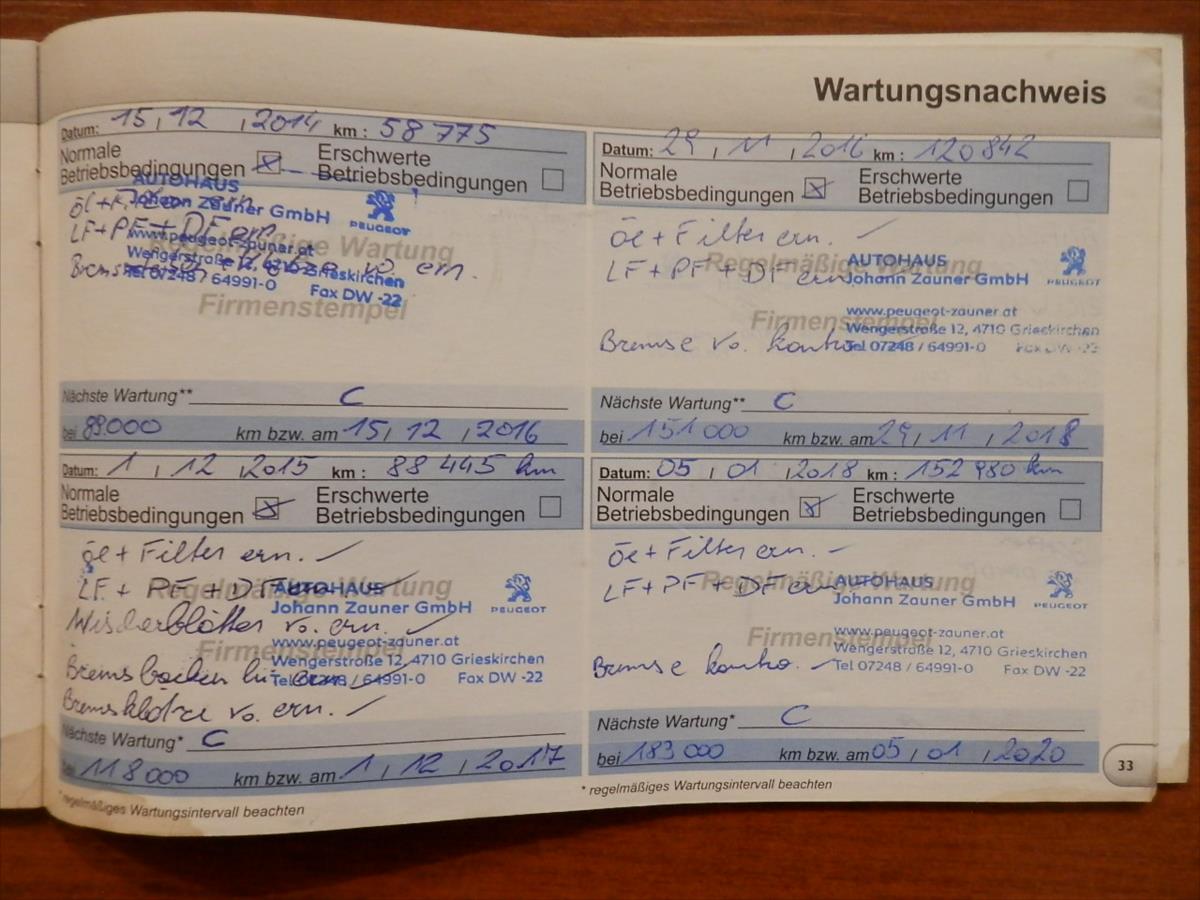 Wartungsnachweis
Datum: 15, 12, 2014 km: 58 775
Normale Betriebsbedingungen ☒ Erschwerte Betriebsbedingungen ☐
öl + ern
LF + PF + DF ern
Brems vo. ern.
Regelmäßige Wartung
Firmenstempel
AUTOHAUS
Johann Zauner GmbH
PEUGEOT
www.peugeot-zauner.at
Wengerstraße 12, 4710 Grieskirchen
Tel 07248 / 64991-0 Fax DW -22
Nächste Wartung** C
bei 89.000 km bzw. am 15, 12, 2016
Datum: 1, 12, 2015 km: 88 445 km
Normale Betriebsbedingungen ☒ Erschwerte Betriebsbedingungen ☐
öl + Filter ern.
LF + PF + DF
Wischerblätter vo. ern.
Bremsbacken hi
Bremsklötze vo. ern.
Regelmäßige Wartung
Firmenstempel
AUTOHAUS
Johann Zauner GmbH
PEUGEOT
www.peugeot-zauner.at
Wengerstraße 12, 4710 Grieskirchen
Tel 07248 / 64991-0 Fax DW -22
Nächste Wartung* C
bei 118 000 km bzw. am 1, 12, 2017
* regelmäßiges Wartungsintervall beachten
Datum: 29, 11, 2016 km: 120 842
Normale Betriebsbedingungen ☒ Erschwerte Betriebsbedingungen ☐
Öl + Filter ern.
LF + PF + DF ern
Bremse vo. kontro
Regelmäßige Wartung
Firmenstempel
AUTOHAUS
Johann Zauner GmbH
PEUGEOT
www.peugeot-zauner.at
Wengerstraße 12, 4710 Grieskirchen
Tel 07248 / 64991-0 Fax DW -22
Nächste Wartung** C
bei 151 000 km bzw. am 29, 11, 2018
Datum: 05, 01, 2018 km: 152 980 km
Normale Betriebsbedingungen ☒ Erschwerte Betriebsbedingungen ☐
öl + Filter ern.
LF + PF + DF ern
Bremse kontro.
Regelmäßige Wartung
Firmenstempel
AUTOHAUS
Johann Zauner GmbH
PEUGEOT
www.peugeot-zauner.at
Wengerstraße 12, 4710 Grieskirchen
Tel 07248 / 64991-0 Fax DW -22
Nächste Wartung* C
bei 183 000 km bzw. am 05, 01, 2020
* regelmäßiges Wartungsintervall beachten
33